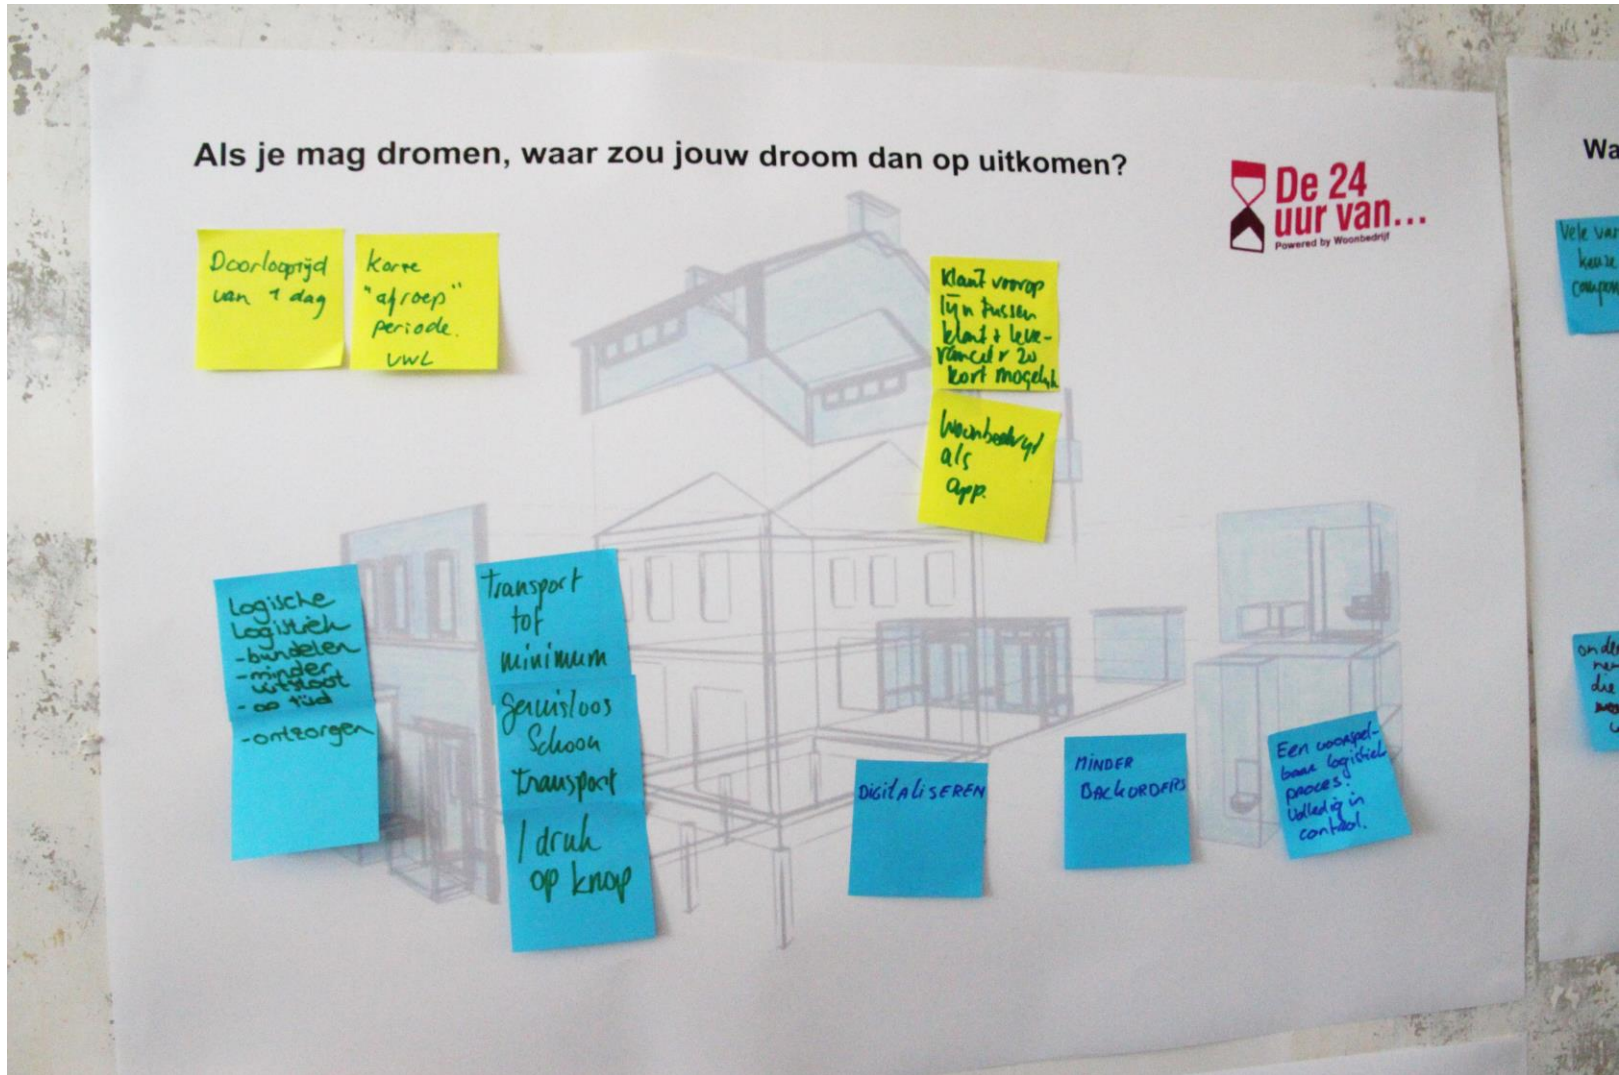 Als je mag dromen, waar zou jouw droom dan op uitkomen?
De 24
uur van...
Powered by Woonbedrijf
Doorlooptijd
van 1 dag
korte
"afroep"
periode.
VWL
Klant voorop
lijn tussen
klant + leve-
rancier zo
kort mogelijk
Woonbedrijf
als
app.
Logische
Logistiek
-bundelen
-minder
uitstoot
- op tijd
-ontzorgen
Transport
tot
minimum
geruisloos
Schoon
transport
1 druk
op knop
DIGITALISEREN
MINDER
BACKORDERS
Een voorspel-
baar logistiek
proces!
Volledig in
control.
Wa
Vele var
keuze
compon
onde
die